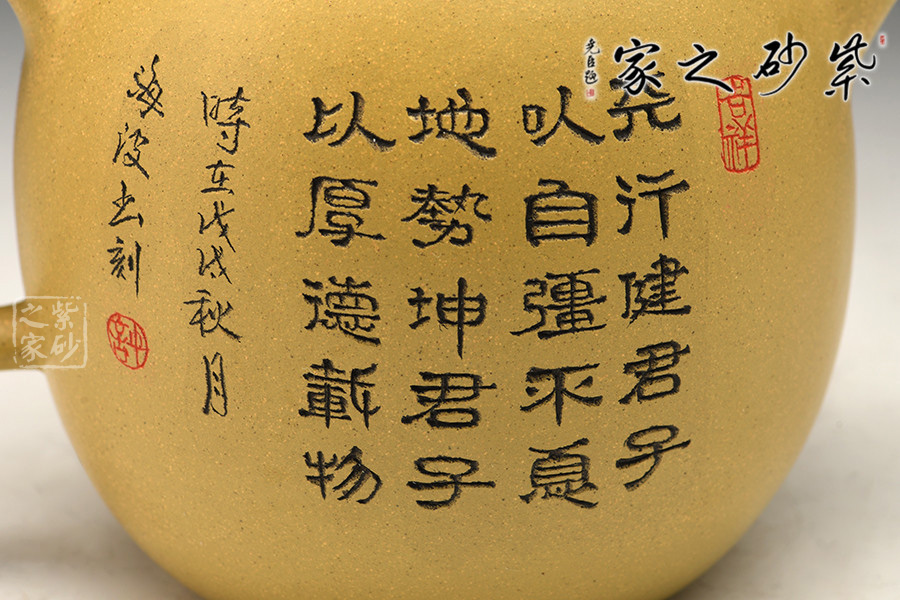 紫砂之家
吉祥
天行健君子
以自彊不息
地勢坤君子
以厚德載物
時在戊戌秋月
书刻
紫砂之家